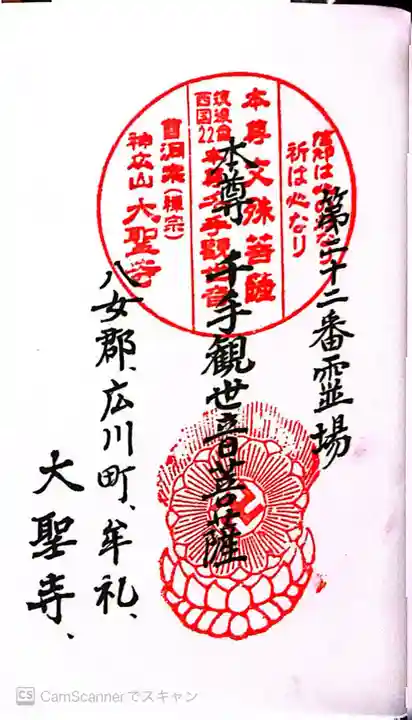 第二十二番霊場
本尊 千手観世音菩薩
八女郡、広川町、牟礼、
大聖寺、
祈は心なり
本尊文殊菩薩
筑後
西国22
本尊千手観世音
曹洞宗(禅宗)
神立山 大聖寺
CS CamScannerでスキャン